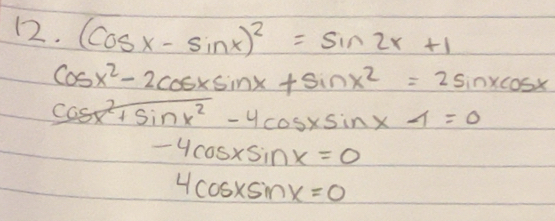 12. (Cosx - sinx)² = sin 2x + 1
Cosx² - 2cosxsinx + sinx² = 2sinxcosx
cosx² + sinx² - 4cosxsinx - 1 = 0
-4cosxsinx = 0
4cosxsinx = 0